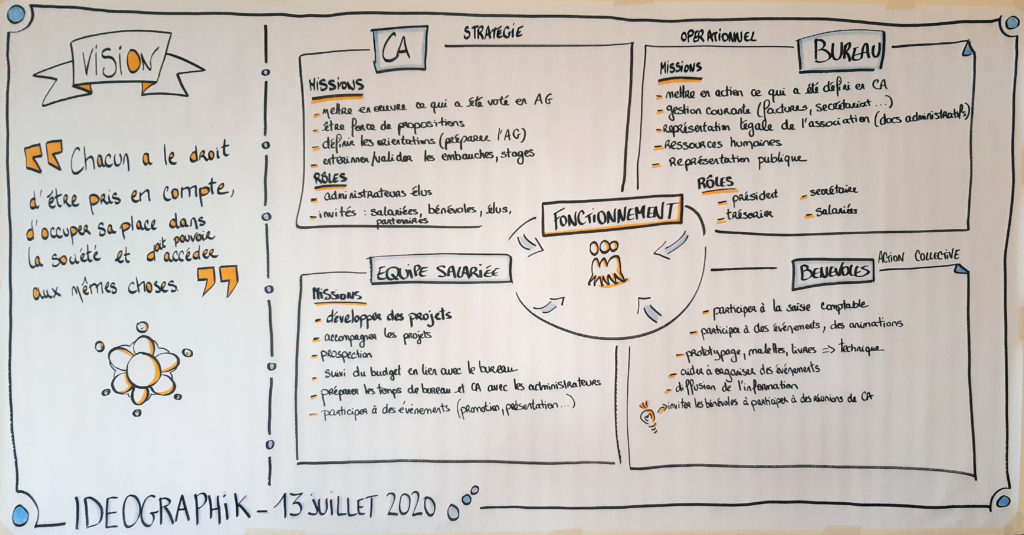 VISION
Chacun a le droit
d'être pris en compte,
d'occuper sa place dans
la société et d'at pouvoir accéder
aux mêmes choses.
STRATÉGIE
CA
MISSIONS
- mettre en oeuvre ce qui a été voté en AG
- être force de propositions
- définir les orientations (préparer l'AG)
- entériner/valider les embauches, stages
RÔLES
- administrateurs élus
- invités : salariées, bénévoles, élus,
partenaires
OPERATIONNEL
BUREAU
MISSIONS
- mettre en action ce qui a été défini en CA
- gestion courante (factures, secrétariat...)
- représentation légale de l'association (docs administratifs)
- Ressources humaines
- Représentation publique
RÔLES
- président
- secrétaire
- trésorier
- salariées
FONCTIONNEMENT
EQUIPE SALARIÉE
MISSIONS
- développer des projets
- accompagner les projets
- prospection
- suivi du budget en lien avec le bureau
- préparer les temps de bureau et CA avec les administrateurs
- participer à des événements (promotion, présentation...)
BENEVOLES
ACTION COLLECTIVE
- participer à la saisie comptable
- participer à des événements, des animations
- prototypage, malettes, livres => technique
- aider à organiser des événements
- diffusion de l'information
-> inviter les bénévoles à participer à des réunions de CA
IDEOGRAPHIK - 13 JUILLET 2020